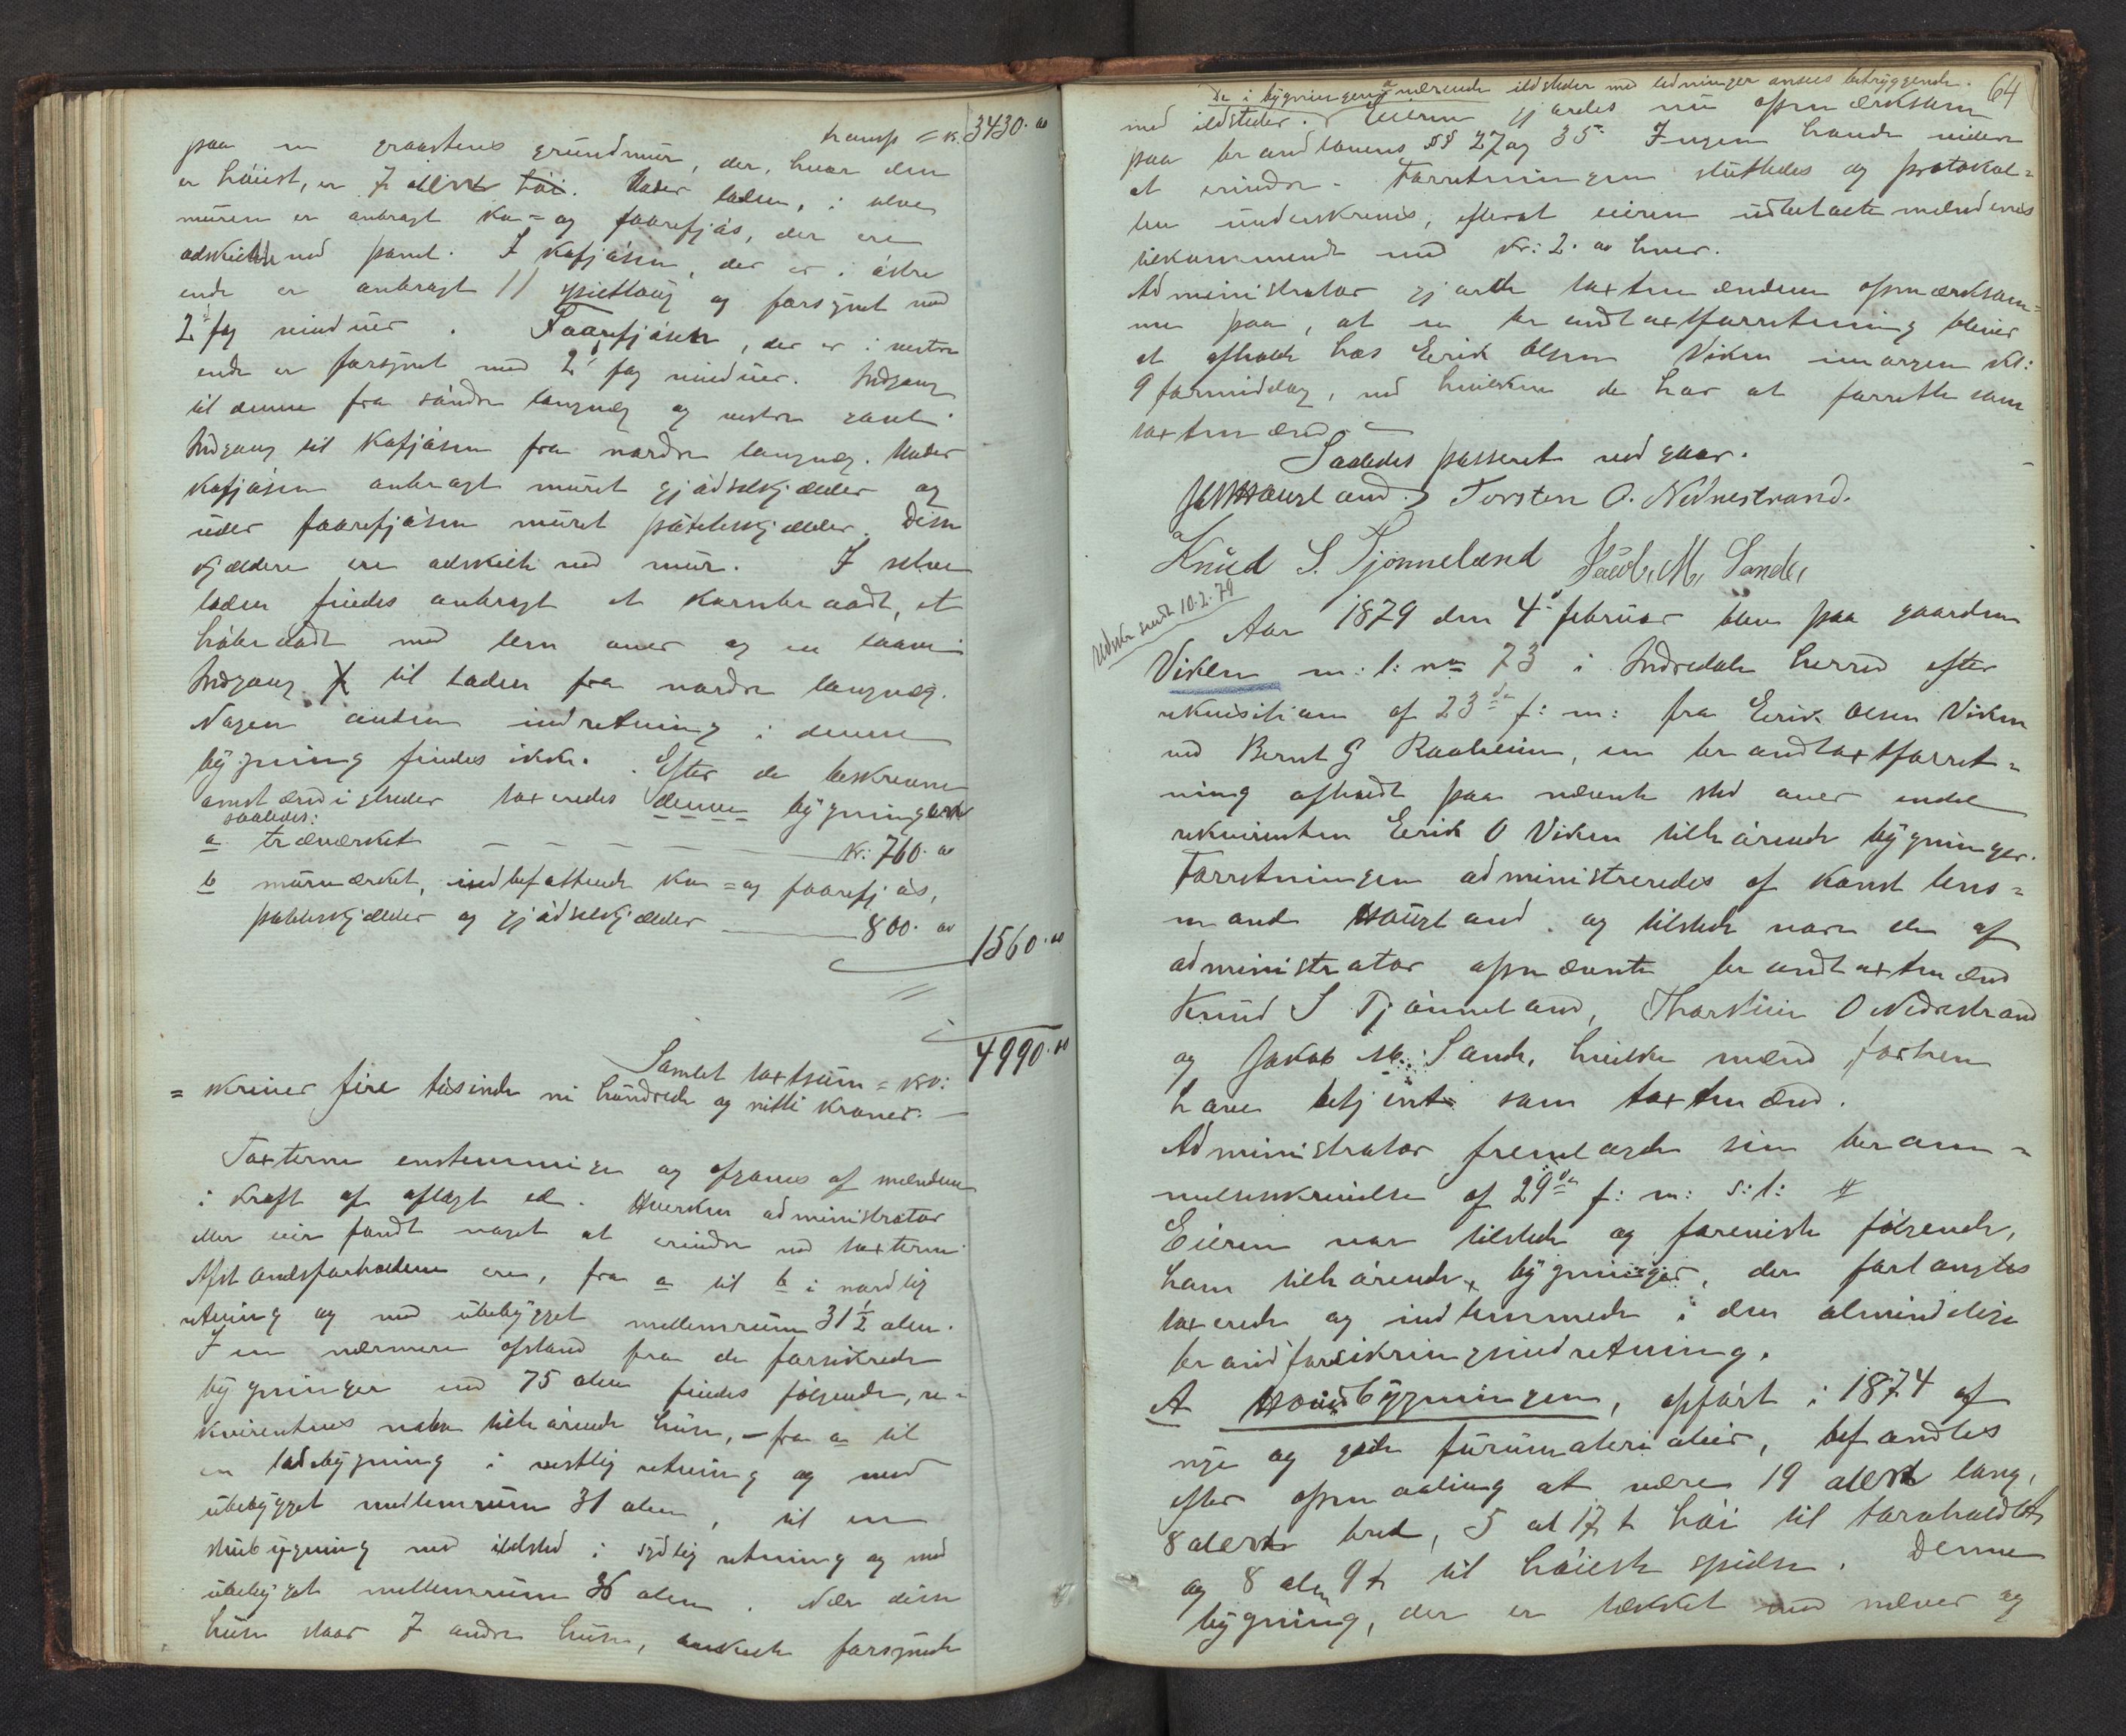 transp = kr. 3430. 00
paa en graastens grundmur, der, hvor den
er høiest, er 7 alen høi. Under laden, i selve
muren er anbragt ko= og faarefjøs, der ere
adskildte med panel. I kofjøsen, der er i østre
ende er anbragt 11 og forsynet med
2 fag vinduer. Faarefjøsen, der er i vestre
ende er forsynet med 2 fag vinduer. Indgang
til denne fra søndre langvæg og vestre gavl.
Indgang til kofjøsen fra nordre langvæg. Under
kofjøsen anbragt muret gjødselkjælder og
under faarefjøsen muret potetkjælder. Disse
kjældere ere adskilte ved mur. I selve
laden findes anbragt et kornbraadt, et
høbraadt med lem over og en laave.
Indgang til laden fra nordre langvæg.
Nogen anden indretning i denne
bygning findes ikke. Efter de beskrevne
omstændigheder taxeredes denne bygning
saaledes:
a træværket — kr: 760. 00
b murværket, indbefattende ko= og faarefjøs,
potetkjælder og gjødselkjælder — 800. 00
1560. 00
Samlet taxtsum = kr: 4990. 00
= skriver fire tusinde ni hundrede og nitti kroner. —
Taxterne enstemmige og afgaves af mændene
i kraft af aflagt ed. Hverken administrator
eller eier fandt noget at erindre ved taxterne.
Afstandsforholdene ere, fra a til b i nordlig
retning og med ubebygget mellemrum 31 ½ alen.
I en nærmere afstand fra de forsikrede
bygninger end 75 alen findes følgende, re=
kvirentens nabo tilhørende huse, — fra a til
en ladebygning i vestlig retning og med
ubebygget mellemrum 31 alen, til en
stuebygning med ildsted i sydlig retning og med
ubebygget mellemrum 36 alen. Nær disse
huse staar 7 andre huse, enkelte forsynede
64
De i bygningerne værende ildsteder med ledninger ansees betryggende.
med ildsteder. Eieren gjordes nu opmærksom
paa brandlovens §§ 27 og 35. Ingen havde videre
at erindre. Forretningen sluttedes og protokol=
len underskreves, efterat eieren udbetalte mændenes
tilkommende med kr: 2. 00 hver.
Administrator gjorde taxtmændene opmærksom=
me paa, at en brandtaxtforretning bliver
at afholde hos Eerik Olsen Viken imorgen kl:
9 formiddag, ved hvilken de har at forrette som
taxtmænd.
Saaledes passeret vedgaar.
Hougland. Torsten O. Nednestrand.
Knud S. Tjønneland Jacob, M, Sande,
Udskr sendt 10.2.79
Aar 1879 den 4de februar blev paa gaarden
Viken m: l: no 73 i Indredale herred efter
rekvisition af 23de f: m: fra Eerik Olsen Viken
ved Bernt G Raaheim, en brandtaxtforret=
ning afholdt paa nævnte sted over endel
rekvirenten Eerik O Viken tilhørende bygninger.
Forretningen administreredes af konst lens=
mand Hougland og tilstede vare de af
administrator opnævnte brandtaxtmænd
Knud S Tjønneland, Thorstein O Nedrestrand
og Jakob M. Sande, hvilke mænd forhen
have betjent som taxtmænd.
Administrator fremlagde sin beram=
melsesskrivelse af 29de f: m: s: l:
Eieren var tilstede og foreviste følgende,
ham tilhørende, bygninger, der forlangtes
taxerede og indlemmede i den almindelige
brandforsikringsindretning.
A Hovedbygningen, opført i 1874 af
nye og gode furumaterialier, befandtes
efter opmaaling at være 19 alen lang,
8 alen bred, 5 al 17 t høi til
og 8 alen 9 t til høieste spidse. Denne
bygning, der er tækket med næver og